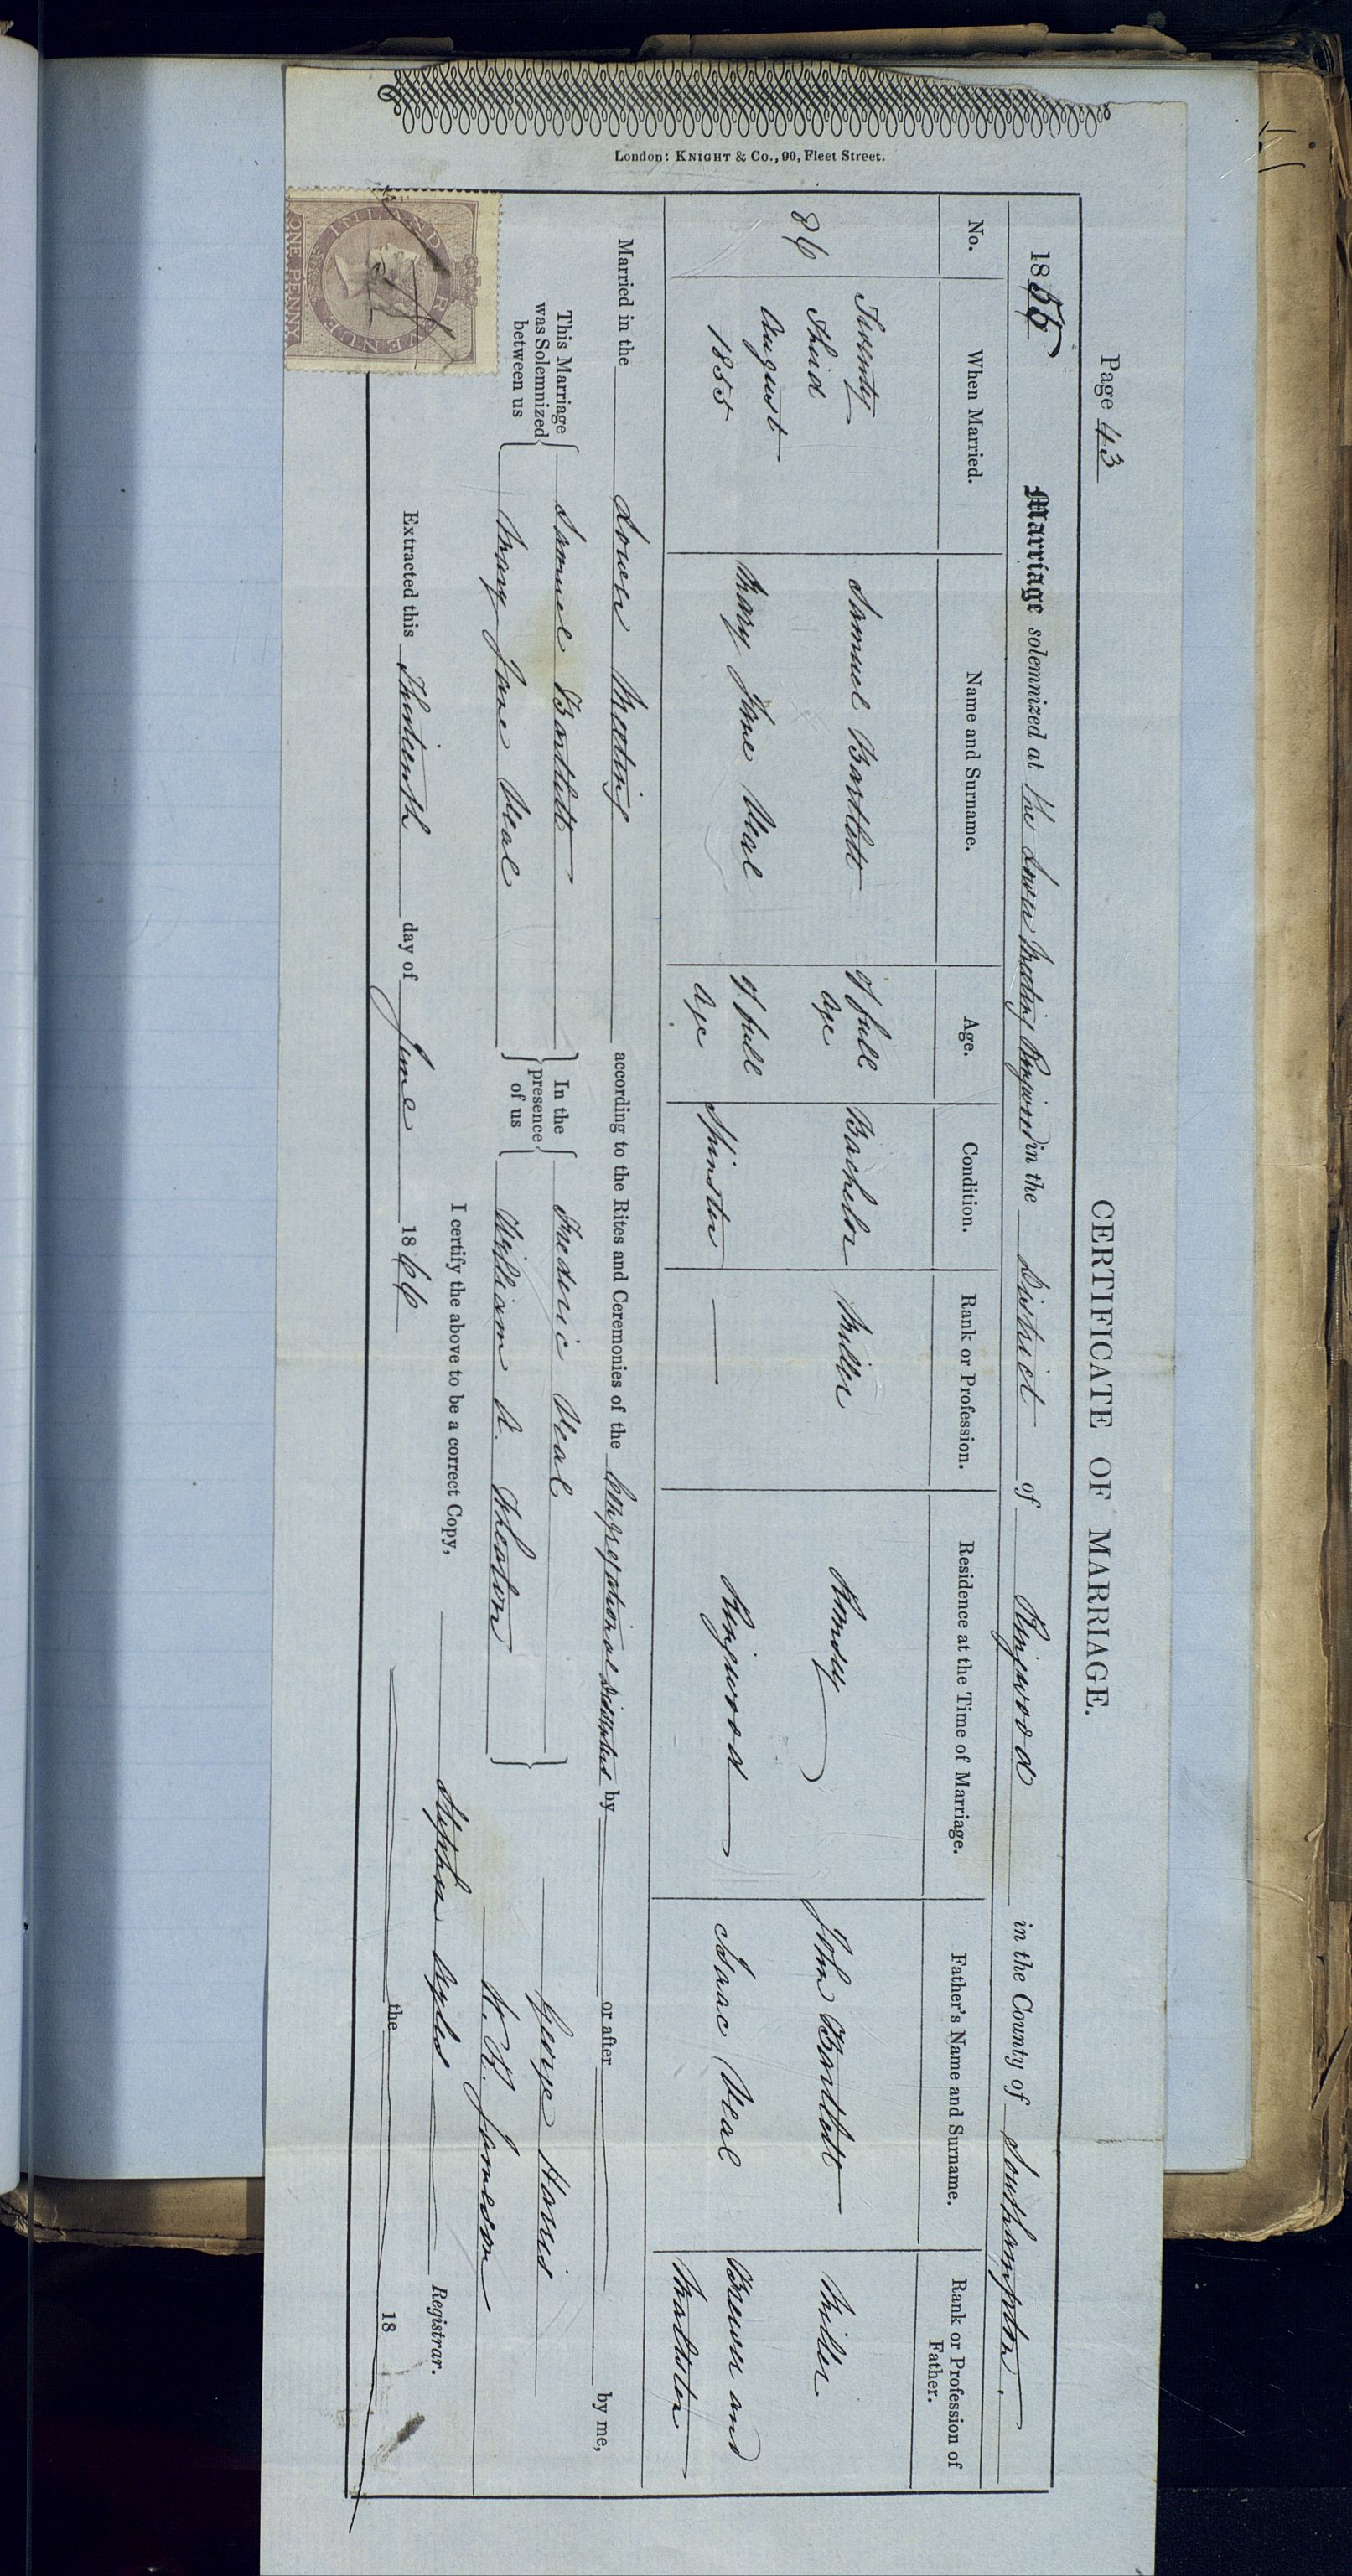 Page 43
CERTIFICATE OF MARRIAGE.
1855 Marriage solemnized at the Lower Meeting Ringwood in the District of Ringwood in the County of Southampton.
No. When Married. Name and Surname. Age. Condition. Rank or Profession. Residence at the Time of Marriage. Father's Name and Surname. Rank or Profession of Father.
86 Twenty Third August 1855
Samuel Bartlett Of full age Bachelor Miller Romsey John Bartlett Miller
Mary Jane Veal Of full age Spinster — Ringwood Isaac Veal Brewer and Maltster
Married in the Lower Meeting according to the Rites and Ceremonies of the Congregational Dissenters by or after by me,
This Marriage was Solemnized between us
Samuel Bartlett
Mary Jane Veal
In the presence of us
Frederic Veal
William A.
George Harris
Jameson
I certify the above to be a correct Copy,
Stephen Registrar.
Extracted this Thirteenth day of June 1866
the 18
London: KNIGHT & Co., 90, Fleet Street.
INLAND REVENUE
ONE PENNY